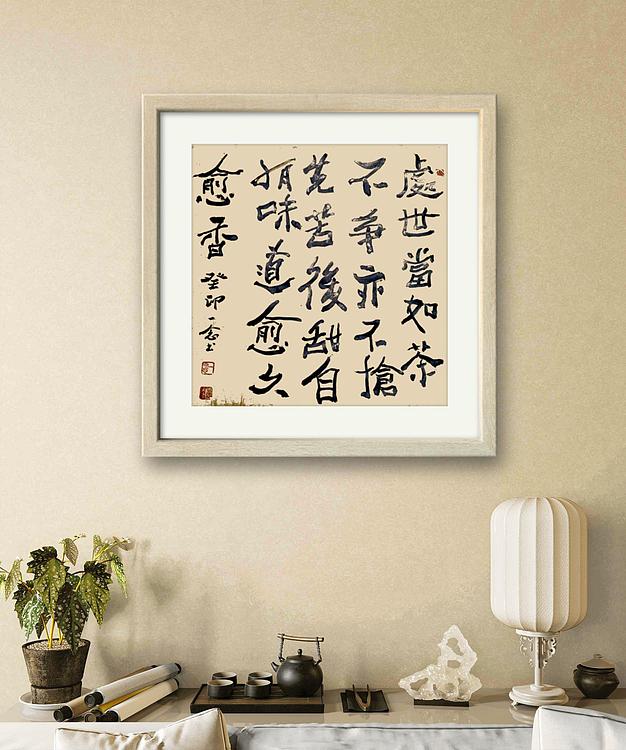 處世當如茶
不爭亦不搶
先苦後甜自
有味道愈久
愈香
癸卯一念书